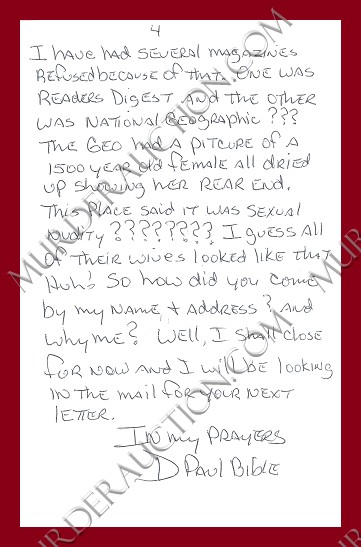 4
I have had several magazines
Refused because of that. One was
Readers Digest and the other
was National Geographic ???
The Geo had a pitcure of a
1500 year old female all dried
up showing her rear end.
This place said it was sexual
nudity ???????? I guess all
of their wives looked like that
Huh! So how did you come
by my name, + address? And
why me? Well, I shall close
for now and I will be looking
in the mail for your next
letter.
In my prayers
D Paul Bible
MURDERAUCTION.COM
MURDERAUCTION.COM
MURDERAUCTION.COM